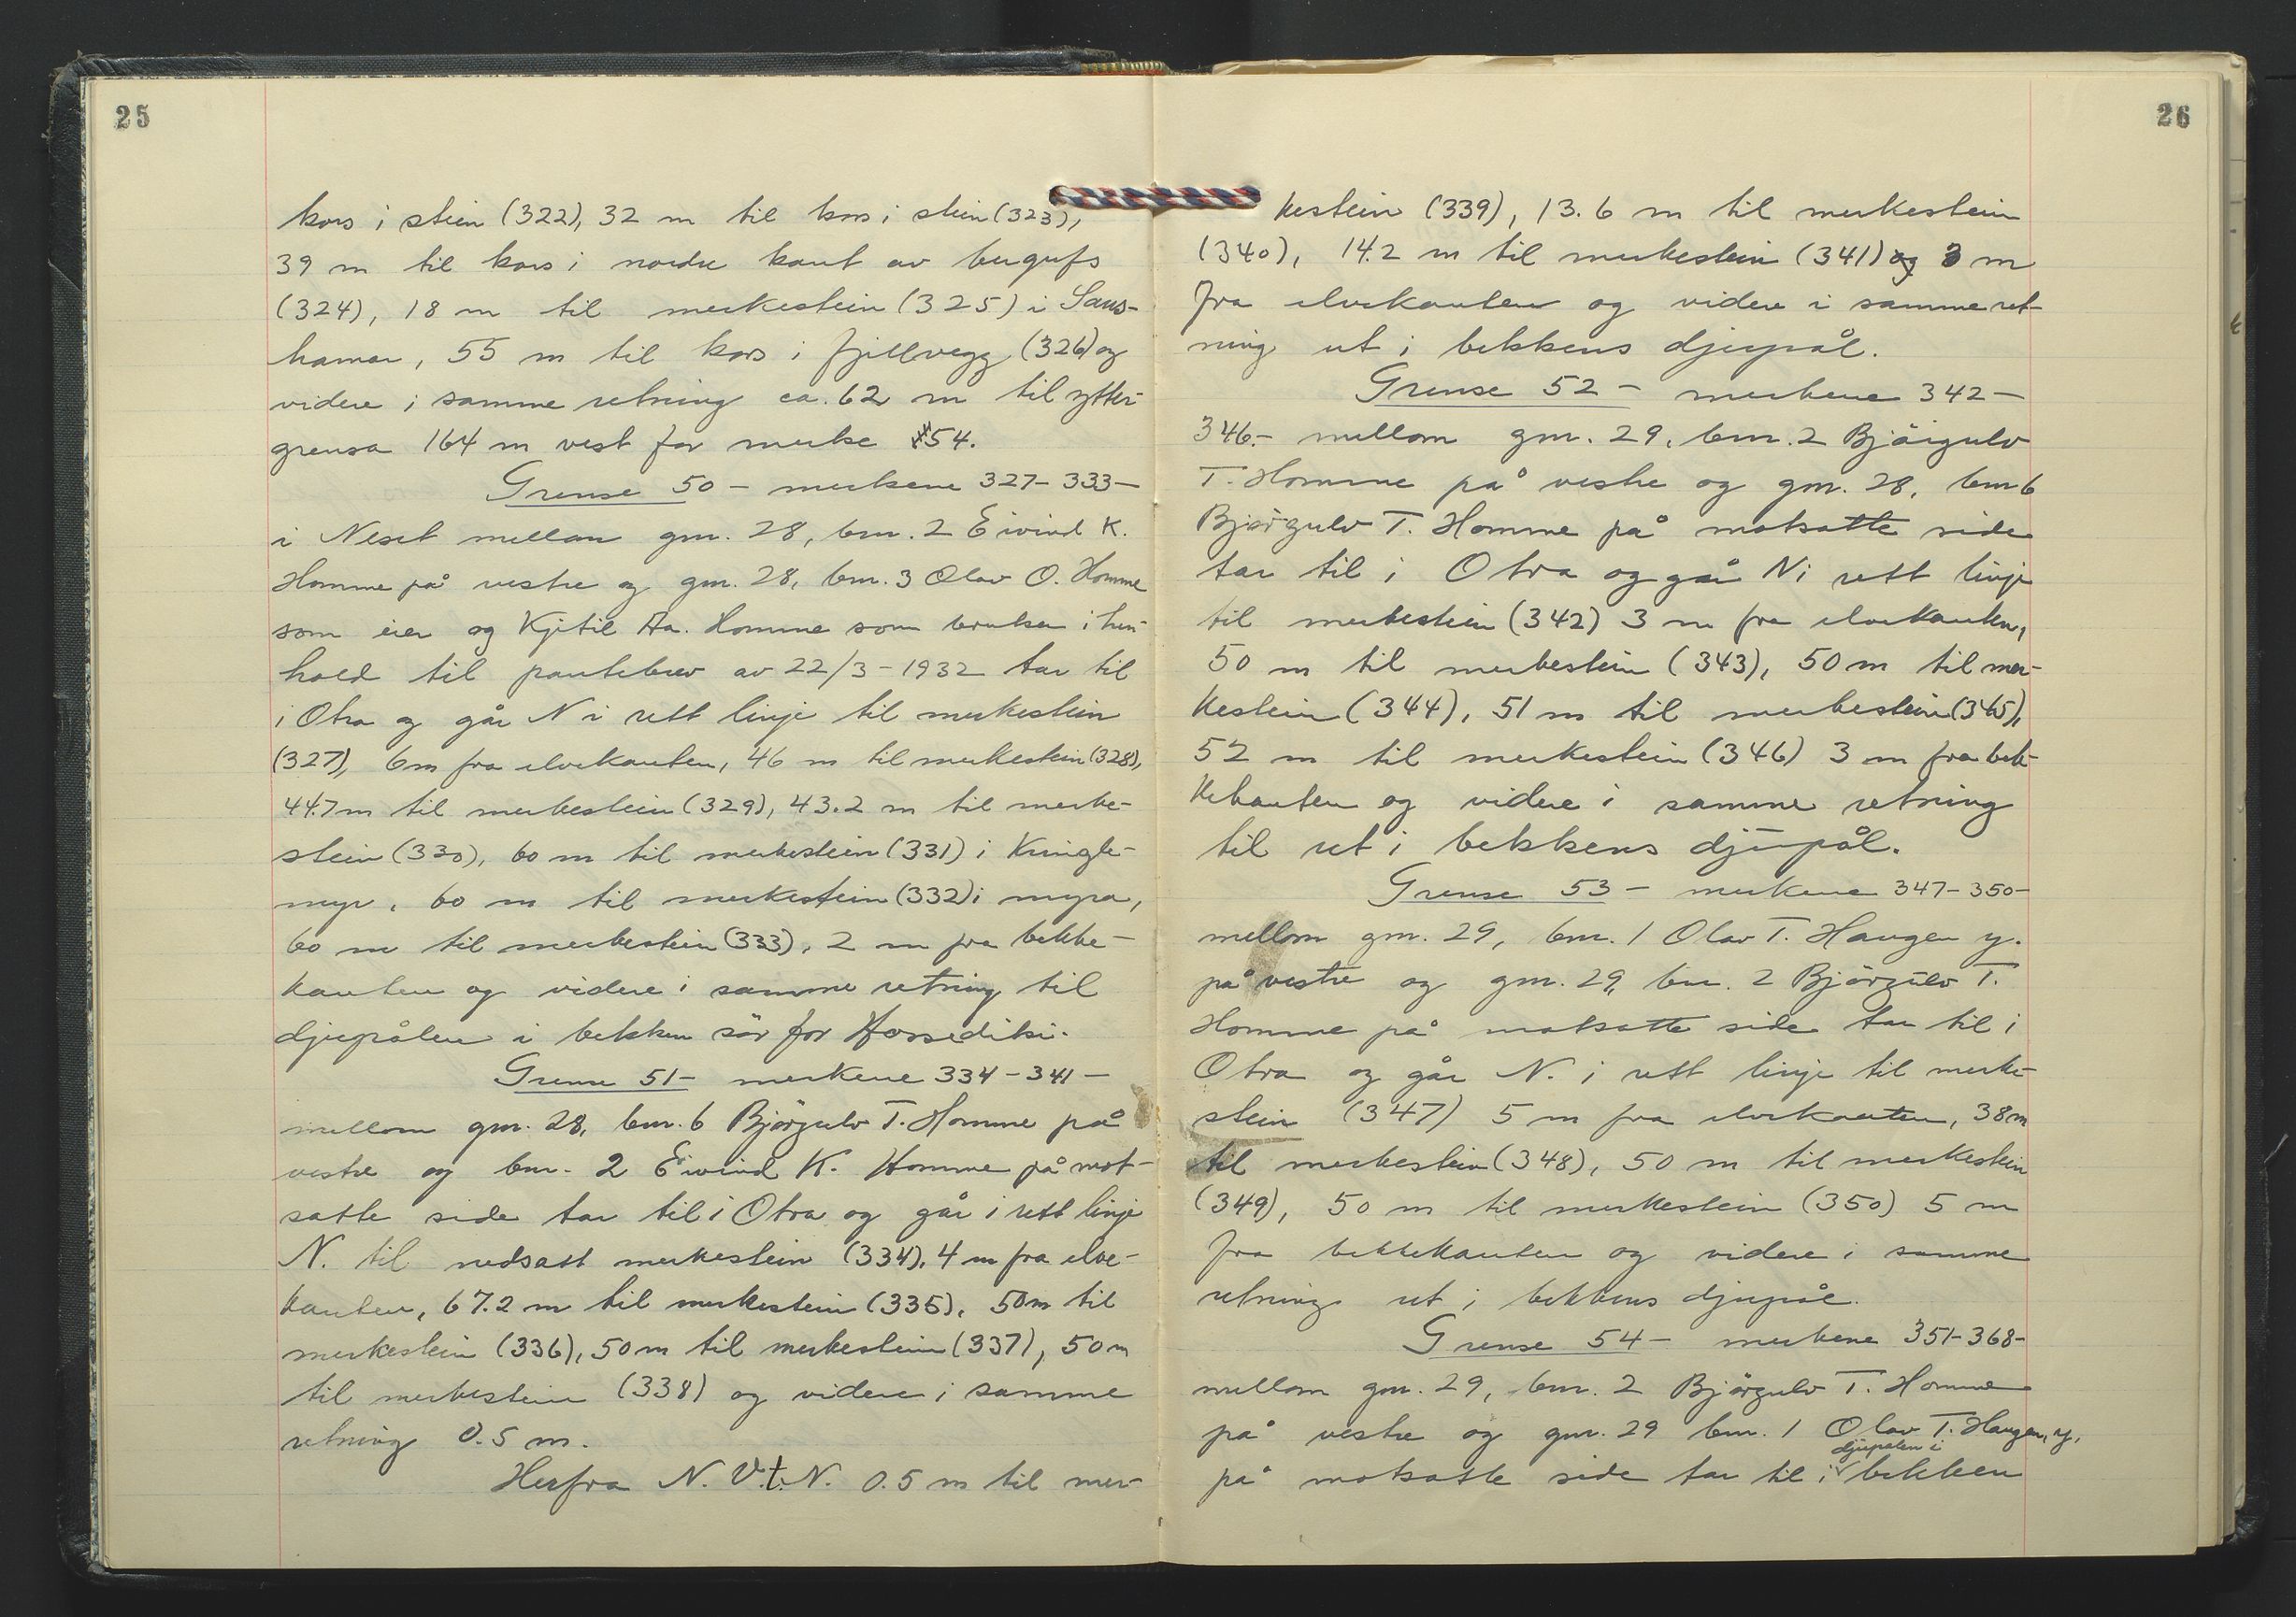 25
kors i stein (322), 32 m til kors i stein (323),
39 m til kors i nordre kant av bergufs
(324), 18 m til merkestein (325) i Saus-
hamar, 55 m til kors i fjellvegg (326) og
videre i samme retning ca. 62 m til ytter-
grensa 164 m vest for merke 54.
Grense 50 - merkene 327-333-
i Neset mellom gnr. 28, bnr. 2 Eivind K.
Homme på vestre og gnr. 28, bnr. 3 Olav O. Homme
som eier og Kjetil Aa. Homme som bruker i hen-
hold til pantebrev av 22/3-1932 tar til
i Otra og går N i rett linje til merkestein
(327), 6m fra elvekanten, 46 m til merkestein (328),
44.7m til merkestein (329), 43.2 m til merke-
stein (330), 60 m til merkestein (331) i Kringle-
myr, 60 m til merkestein (332) i myra,
60 m til merkestein (333), 2 m fra bekke-
kanten og videre i samme retning til
djupålen i bekken sör for Hossediki.
Grense 51- merkene 334-341-
mellom gnr. 28, bnr. 6 Björgulv T. Homme på
vestre og bnr. 2 Eivind K. Homme på mot-
satte side tar til i Otra og går i rett linje
N. til nedsatt merkestein (334), 4 m fra elve-
kanten, 67.2 m til merkestein (335), 50m til
merkestein (336), 50 m til merkestein (337), 50 m
til merkestein (338) og videre i samme
retning 0.5 m.
Herfra N.V.t.N. 0.5 m til mer-
26
kestein (339), 13.6 m til merkestein
(340), 14.2 m til merkestein (341) og 3 m
fra elvekanten og videre i samme ret-
ning ut i bekkens djupål.
Grense 52 - merkene 342-
346.- mellom gnr. 29, bnr. 2 Björgulv
T. Homme på vestre og gnr. 28, bnr 6
Björgulv T. Homme på motsatte side
tar til i Otra og går N i rett linje
til merkestein (342) 3 m fra elvekanten,
50 m til merkestein (343), 50 m til mer-
kestein (344), 51 m til merkestein (345),
52 m til merkestein (346) 3 m fra bek-
kekanten og videre i samme retning
til ut i bekkens djupål.
Grense 53 - merkene 347-350-
mellom gnr. 29, bnr. 1 Olav T. Haugen y.
på vestre og gnr. 29, bnr. 2 Björgulv T.
Homme på motsatte side tar til i
Otra og går N. i rett linje til merke-
stein (347) 5 m fra elvekanten, 38m
til merkestein (348), 50 m til merkestein
(349), 50 m til merkestein (350) 5 m
fra bekkekanten og videre i samme
retning ut i bekkens djupål.
Grense 54 - merkene 351-368-
mellom gnr. 29, bnr. 2 Björgulv T. Homme
på vestre og gnr. 29 bnr. 1 Olav T. Haugen, y.
djupalen i
på motsatte side tar til i bekken